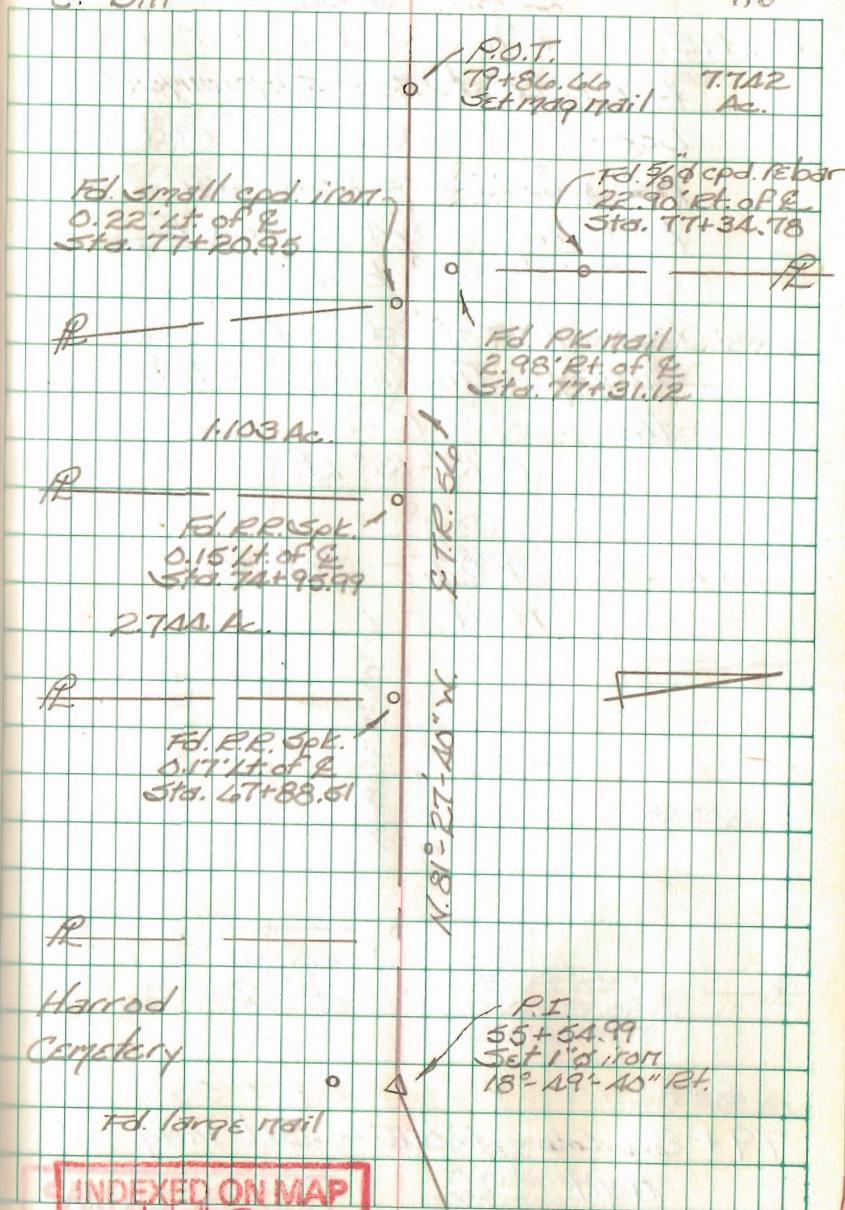 P.O.T.
79+86.66
Set mag nail
7.742
Ac.
Fd. small cpd. iron
0.22' Lt. of ℄
Sta. 77+20.95
Fd. 5/8"ø cpd. rebar
22.90' Rt. of ℄
Sta. 77+34.78
PL
PL
Fd PK nail
2.98' Rt. of ℄
Sta. 77+31.12
1.103 Ac.
PL
℄ T.R. 56
Fd. R.R. Spk.
0.15' Lt. of ℄
Sta. 74+95.99
2.744 Ac.
PL
Fd. R.R. Spk.
0.17' Lt. of ℄
Sta. 67+88.51
N. 81°-27'-40" W.
PL
Harrod
Cemetery
P.I.
55+54.99
Set 1"ø iron
18°-49'-40" Rt.
Fd. large nail
INDEXED ON MAP